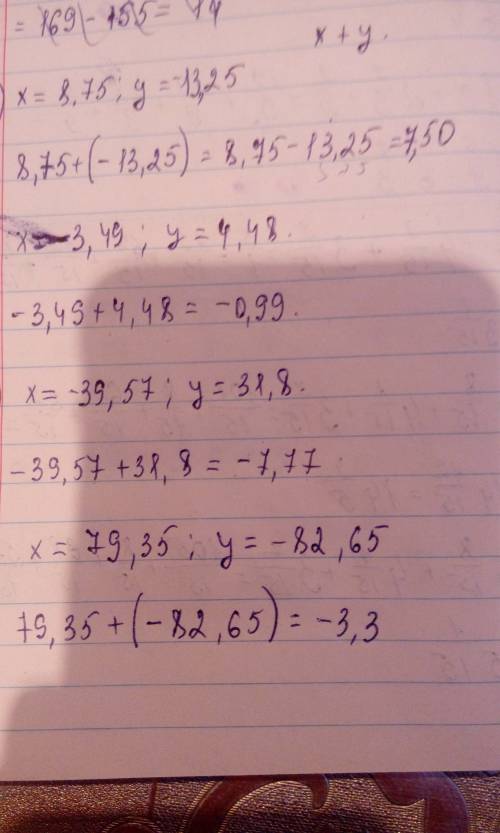 = 169 - 155 = 14
x + y.
x = 8,75; y = -13,25
8,75+(-13,25) = 8,75-13,25 = 7,50
x = -3,49; y = 4,48.
-3,49+4,48 = -0,99.
x = -39,57; y = 31,8.
-39,57+31,8 = -7,77
x = 79,35; y = -82,65
79,35+(-82,65) = -3,3